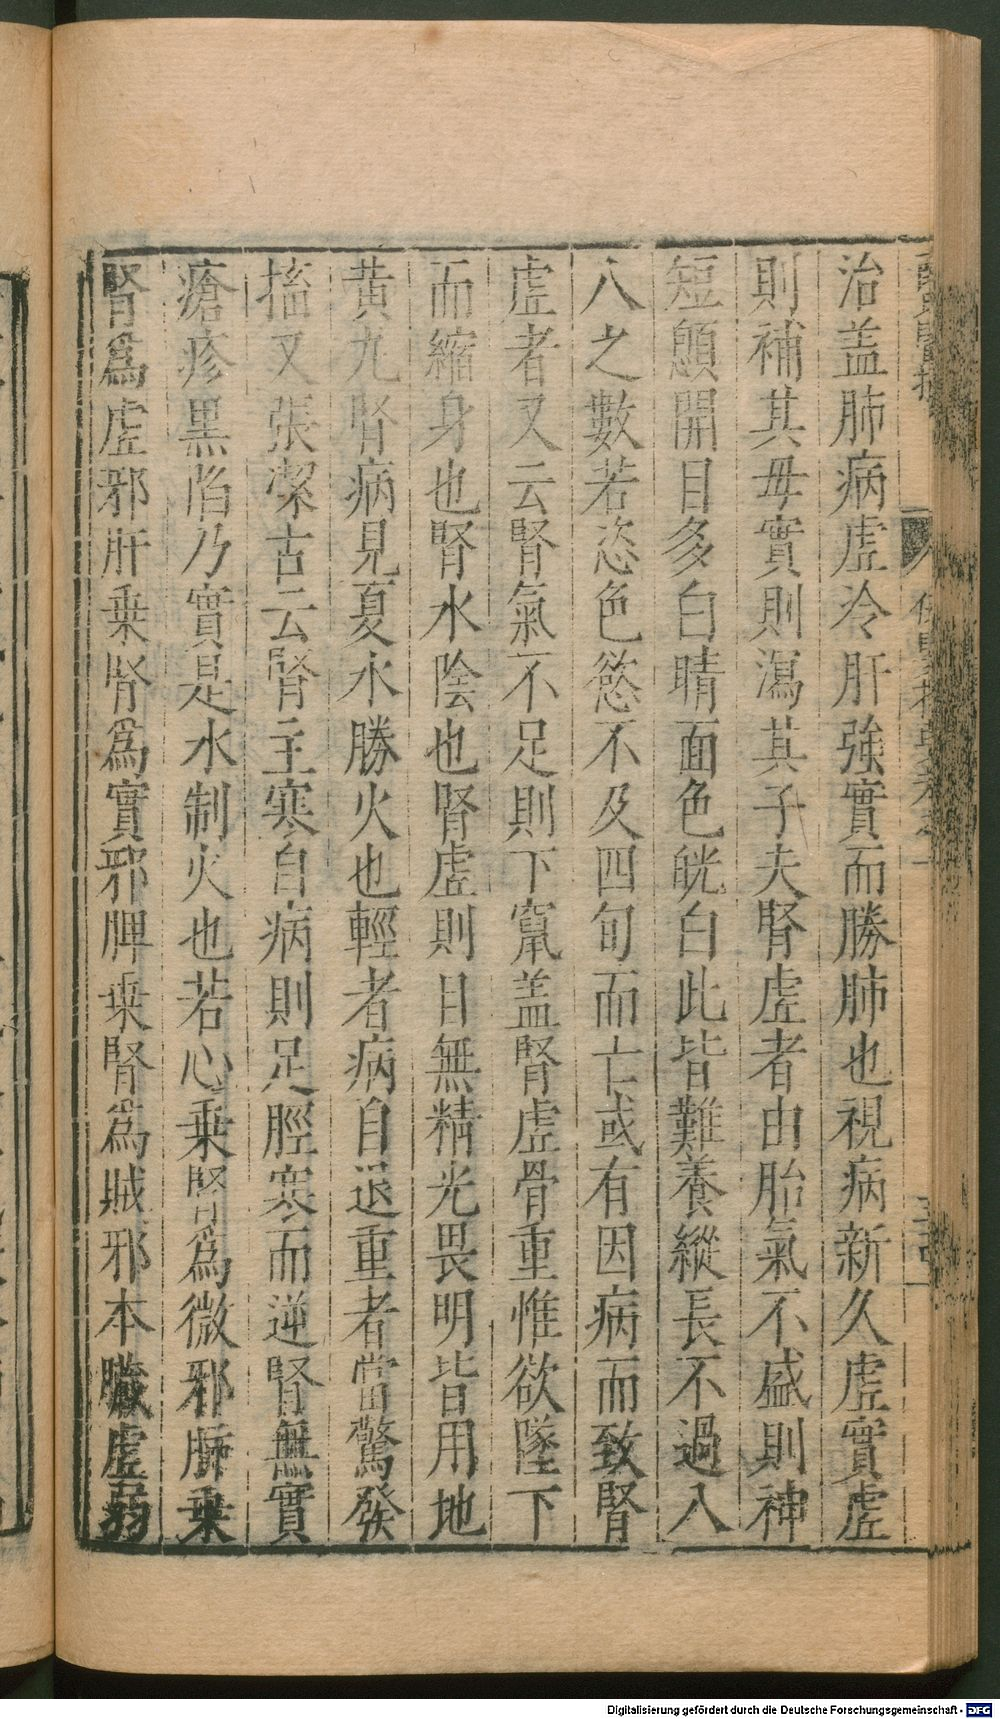 治盖肺病虛冷肝強實而勝肺也視病新久虛實虛
則補其母實則瀉其子夫腎虛者由胎氣不盛則神
短顫開目多白睛面色㿠白此皆難養縱長不過八
八之數若恣色慾不及四旬而亡或有因病而致腎
虛者又云腎氣不足則下竄盖腎虛骨重惟欲墜下
而縮身也腎水陰也腎虛則目無精光畏明皆用地
黃丸腎病見夏水勝火也輕者病自退重者當驚發
搐又張潔古云腎主寒自病則足脛寒而逆腎無實
瘡疹黑陷乃實是水制火也若心乗腎為微邪肺乗
腎為虛邪肝乗腎為實邪脾乗腎為賊邪本臟虛弱
Digitalisierung gefördert durch die Deutsche Forschungsgemeinschaft - DFG